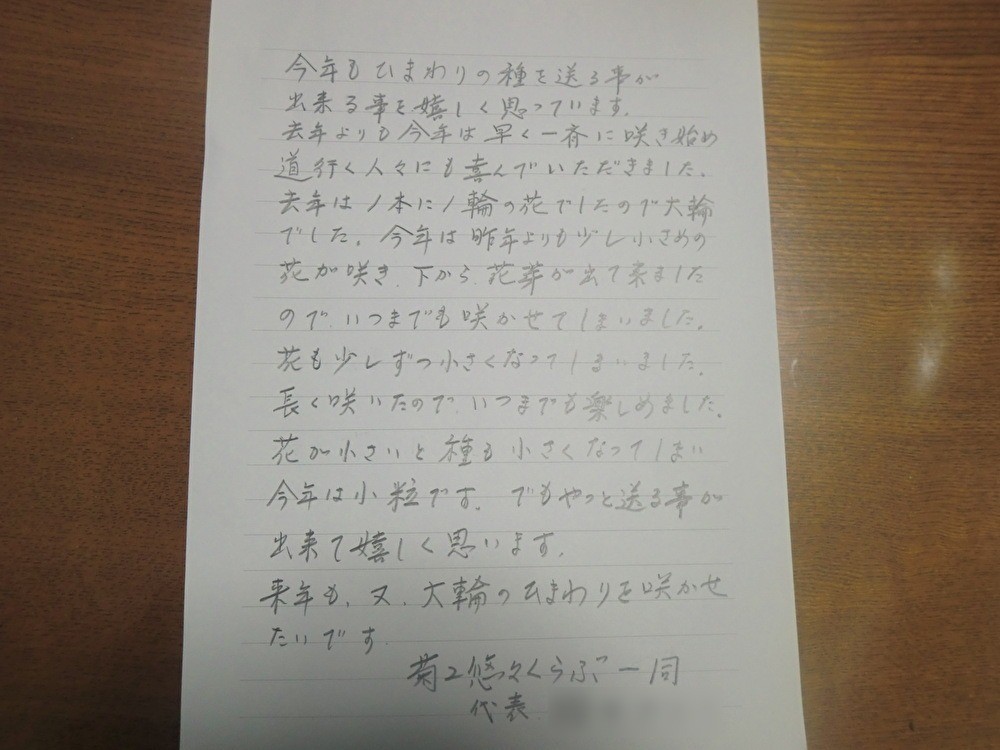 今年もひまわりの種を送る事が
出来る事を嬉しく思っています。
去年よりも今年は早く一斉に咲き始め
道行く人々にも喜んでいただきました。
去年は1本に1輪の花でしたので大輪
でした。今年は昨年よりも少し小さめの
花が咲き、下から、花芽が出て来ました
ので、いつまでも咲かせてしまいました。
花も少しずつ小さくなってしまいました。
長く咲いたので、いつまでも楽しめました。
花が小さいと種も小さくなってしまい
今年は小粒です。でもやっと送る事が
出来て嬉しく思います。
来年も、又、大輪のひまわりを咲かせ
たいです
菊2悠々くらぶ一同
代表